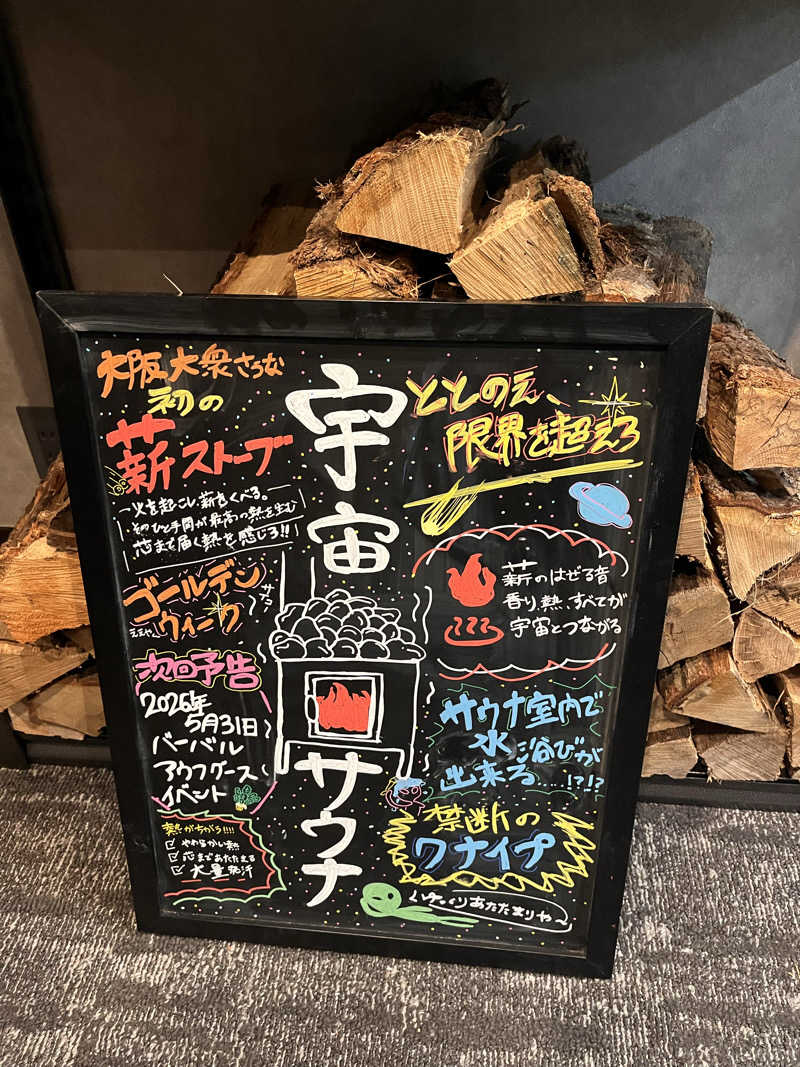 大阪大衆さうな
初の
薪ストーブ
火を起こし、薪をくべる。
そのひと手間が最高の熱を生む
芯まで届く熱を感じろ!!
ゴールデン
ウィーク
次回予告
2026年
5月31日
バーバル
アウフグース
イベント
熱がちがう!!!!
やわらかい熱
芯まであたたまる
大量発汗
宇宙
サウナ
ととのえ、
限界を超えろ
薪のはぜる音
香り、熱、すべてが
宇宙とつながる
サウナ室内で
水浴びが
出来る...!?!?
禁断の
ワナイプ
ゆっくりあたたまりや〜